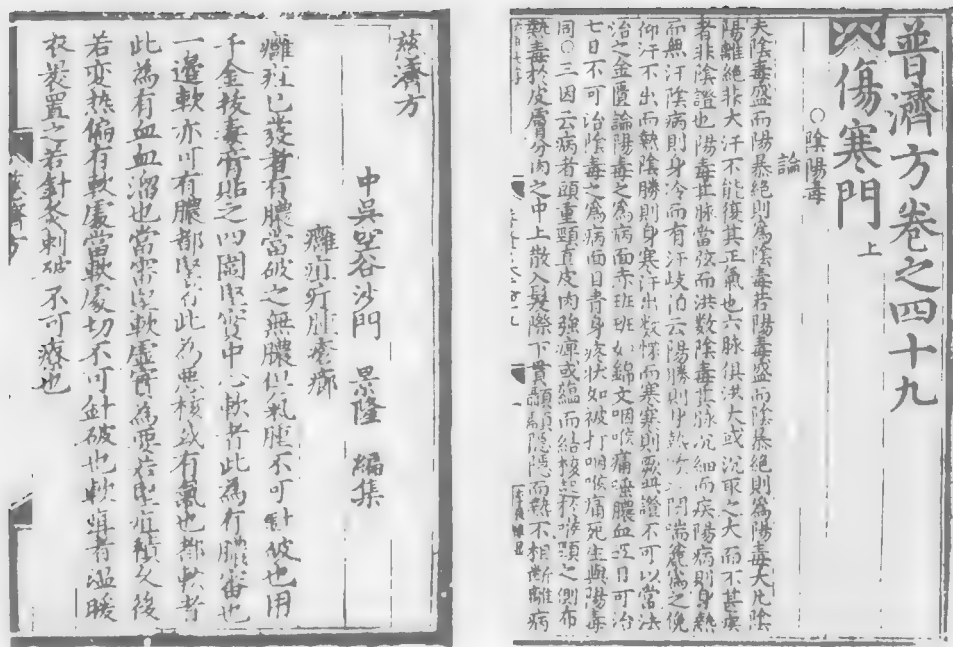 普濟方卷之四十九
傷寒門上
○陰陽毒
論
夫陰毒盛而陽暴絕則為陰毒若陽毒盛而陰暴絕則為陽毒大凡陰
陽離絕非大汗不能復其正氣也六脉俱洪大或沉取之大而不甚疾
者非陰證也陽毒其脉當弦而洪數陰毒其脉沉細而疾陽病則身熱
而無汗陰病則身冷而有汗岐泊云陽勝則身熱喘麄為之俛
仰汗不出而熱陰勝則身寒汗出數慄而寒寒則厥其證不可以當法
治之金匱論陽毒之為病面赤班班如錦文咽喉痛唾膿血五日可治
七日不可治陰毒之為病面目青身疼狀如被打咽喉痛死生與陽毒
同○三因云病者頭重頸直皮肉強痺或蘊而結核起於喉頸之側布
熱毒於皮膚分肉之中上散入髮際下貫顙隱隱而熱不相斷離病
慈濟方
中吳空谷沙門 景隆 編集
癰疽疔腫瘡癤
癰疽已發者有膿當破之無膿但氣腫不可針破也用
千金拔毒膏貼之四圍堅實中心軟者此為有膿審也
一邊軟亦可有膿都堅者此為惡核或有氣也都軟者
此為有血血溜也當審堅軟虛實為要若堅疽積久後
若变热偏有軟處當軟處切不可針破也軟者溫暖
衣裳置之若針灸刺破不可療也